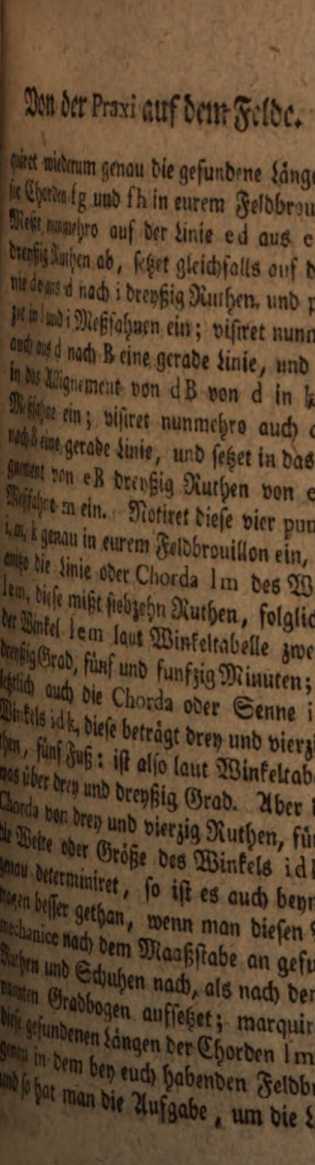 Von der Praxi auf dem Felde.
wiederum genau die gefundene Länge
Chorden fg und fh in eurem Feldbrou
Meßt nunmehro auf der Linie ed aus e
dreyßig Ruthen ab, setzet gleichfalls auf d
d nach i dreyßig Ruthen, und p
und i Meßfahnen ein; visiret nunm
auch aus d nach B eine gerade Linie, und
in das Alignement von dB von d in k
Meßfahne ein; visiret nunmehro auch
nach B eine gerade Linie, und setzet in das
von eB dreyßig Ruthen von e
Meßfahne m ein. Notiret diese vier pun
k genau in eurem Feldbrouillon ein,
die Linie oder Chorda lm des W
lem, diese mißt siebzehn Ruthen, folglic
der Winkel lem laut Winkeltabelle zwe
dreyßig Grad, fünf und funfzig Minuten;
letztlich auch die Chorda oder Senne i
Winkels idk, diese beträgt drey und vierz
fünf Fuß: ist also laut Winkeltab
was über drey und dreyßig Grad. Aber
Chorda von drey und vierzig Ruthen, fü
die Weite oder Größe des Winkels idk
genau determiniret, so ist es auch beyn
besser gethan, wenn man diesen
mechanice nach dem Maaßstabe an gefu
Ruthen und Schuhen nach, als nach den
Gradbogen aufsetzet; marquir
diese gefundenen Längen der Chorden lm
genau in dem bey euch habenden Feldb
und so hat man die Aufgabe, um die L